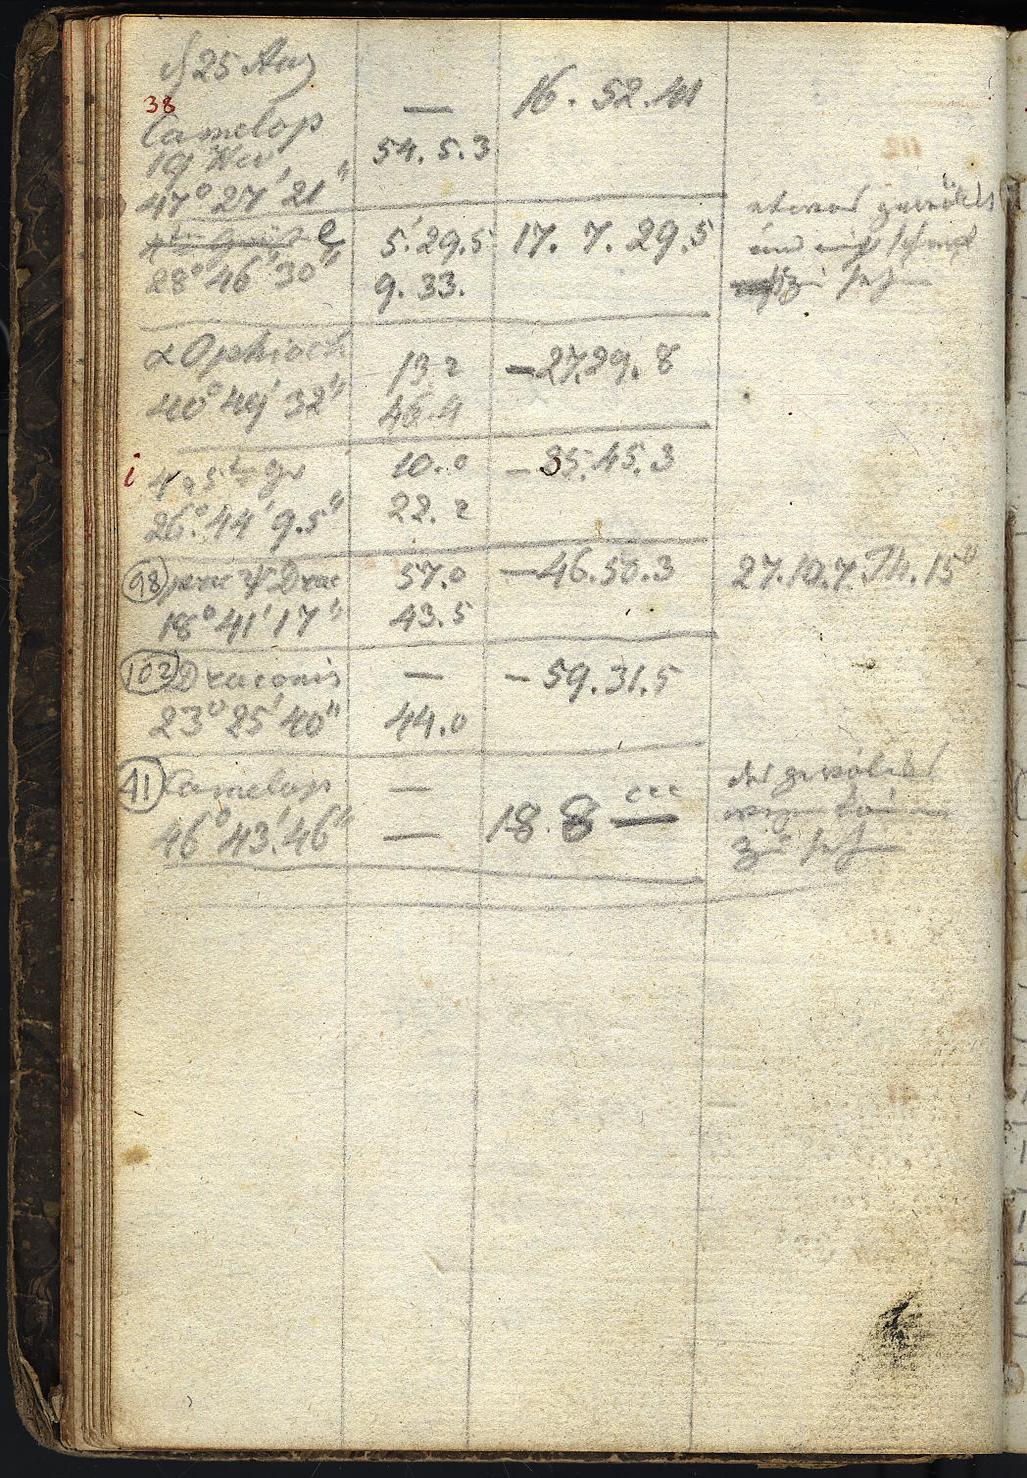 25 Aug
38
Camelop — 16. 52. 41
19 Hev 54. 5. 3
47° 27' 21"
e 5'. 29. 5 17. 7. 29. 5
28° 46' 30" 9. 33.
α Ophioch 13. 2 — 27. 29. 8
40° 49' 32" 46. 4
i 10. 0 — 35. 45. 3
26° 44' 9.5" 22. 2
98 praec ψ Drac 57. 0 — 46. 50. 3 27. 10. 7. Th. 15°
18° 41' 17" 43. 5
102 Draconis — — 59. 31. 5
23° 25' 40" 44. 0
41 Camelop —
46° 43' 46" — 18. 8 —
etwas gewölkt
und nicht scharf
zu sehn
zu sehn